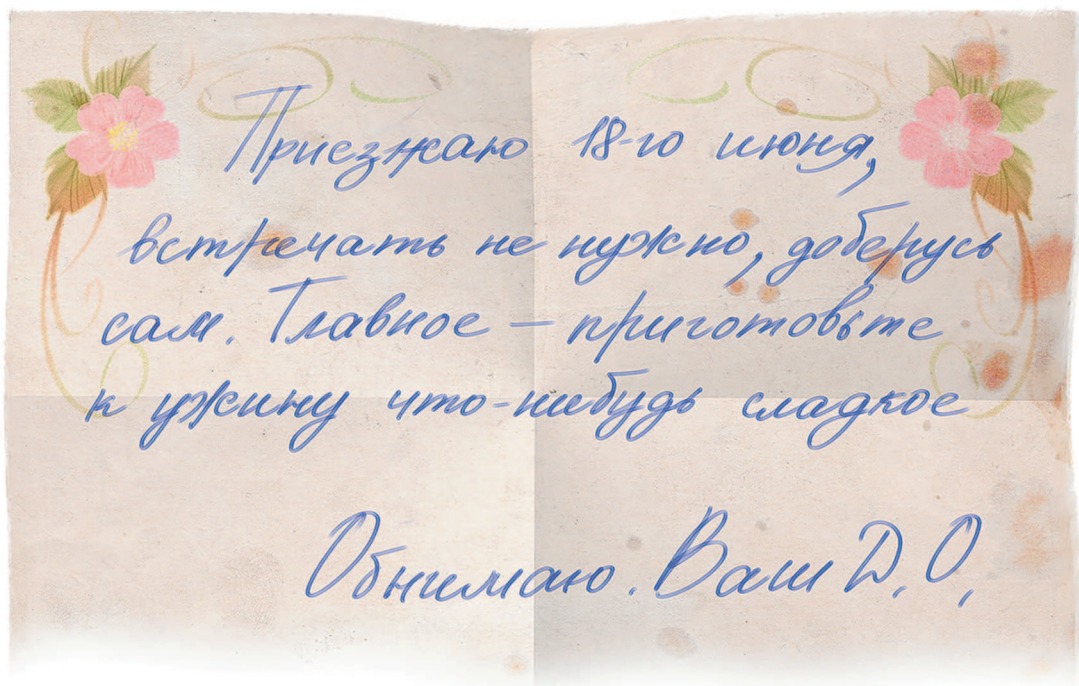 Приезжаю 18-го июня,
встречать не нужно, доберусь
сам. Главное – приготовьте
к ужину что-нибудь сладкое
Обнимаю. Ваш Д.О,